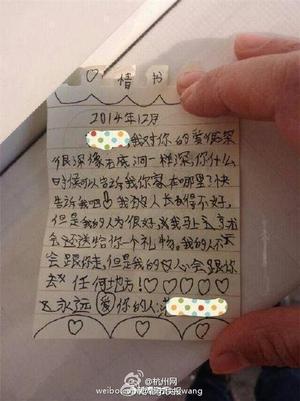 ♡ 情书
2014年12月
我对你的爱很深
很深像无底洞一样深,你什么
时候可以告诉我你家在哪里?快
告诉我吧!我的人长的不好,
但是我的人为很好,我马上
会送给你一个礼物。我的人不
会跟你走,但是我的心会跟你
去任何地方!♡♡♡♡♡
永远(爱你的人:
♡ ♡ ♡
@杭州网
weibo.com/
wang